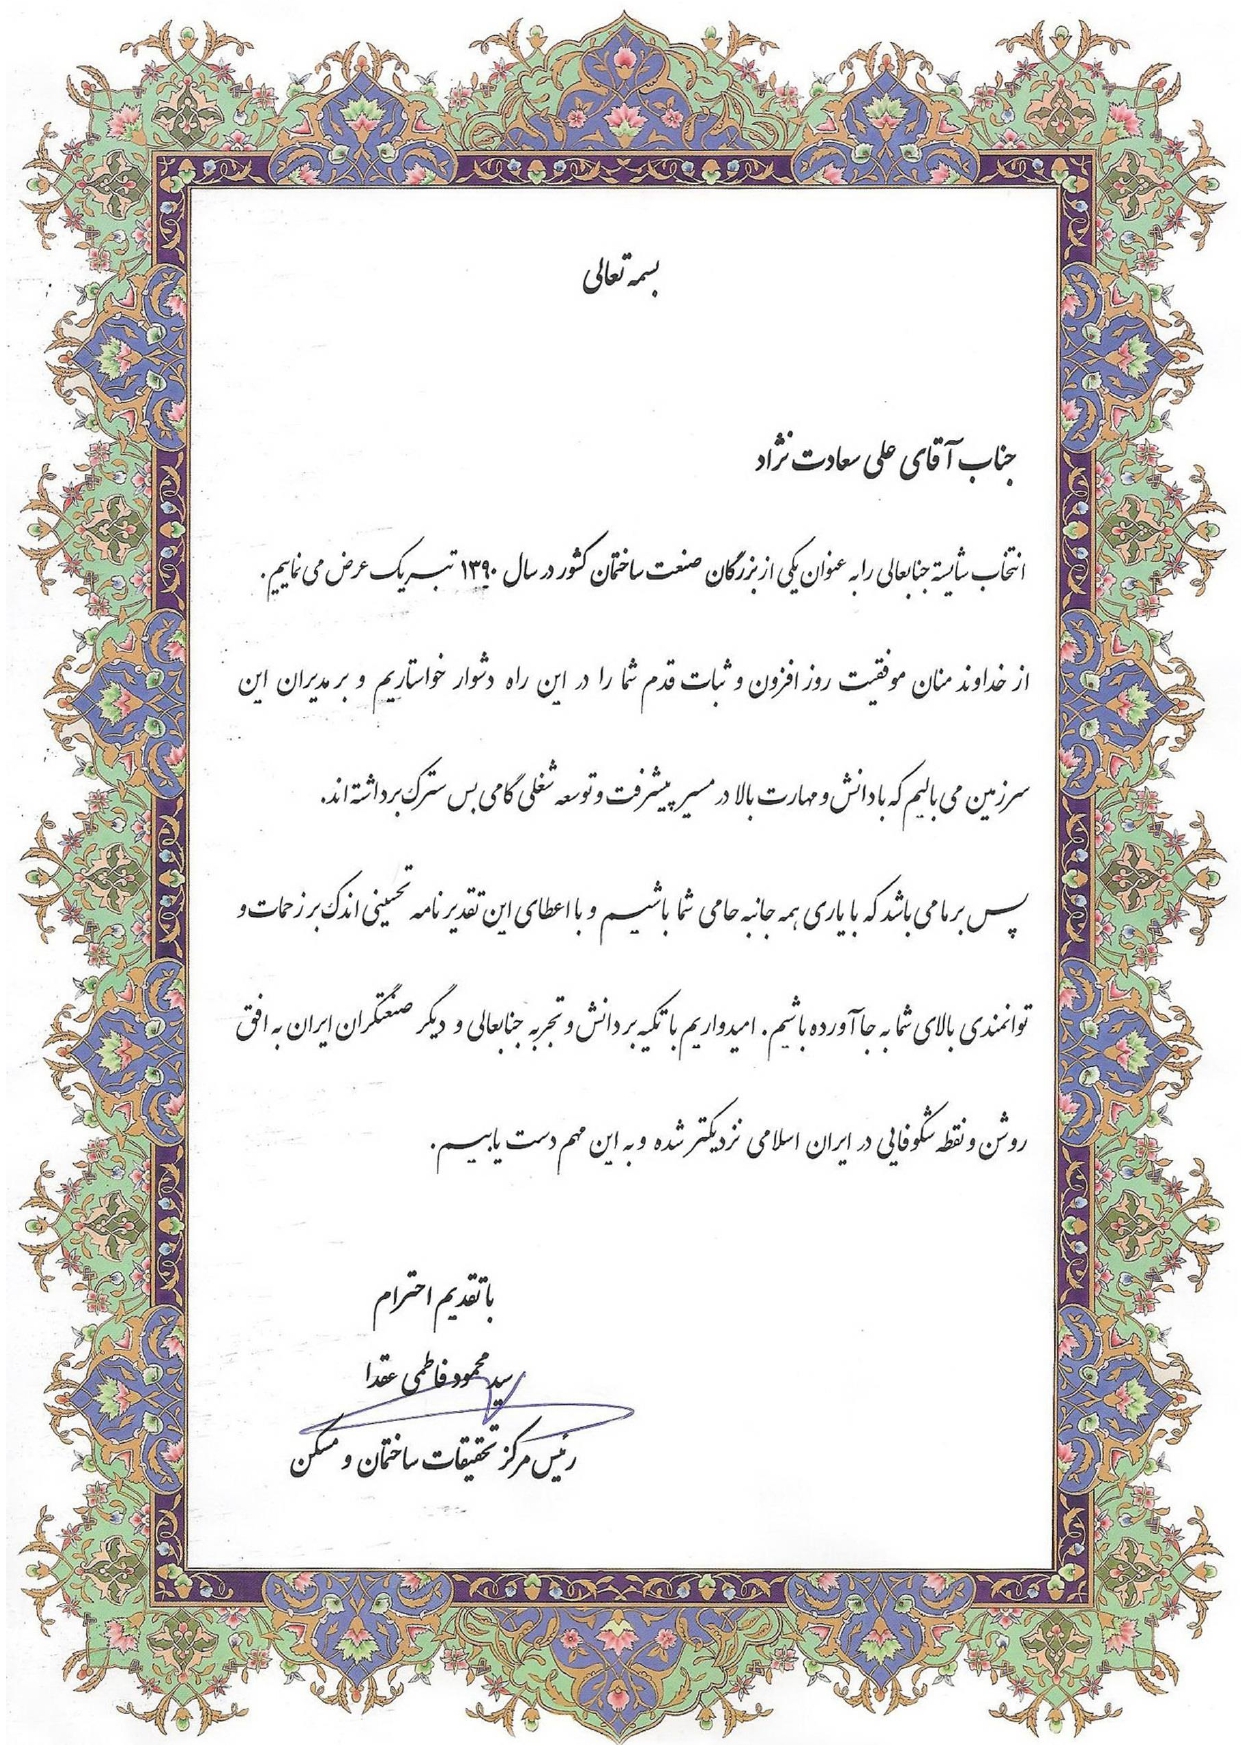 بسمه تعالی
جناب آقای علی سعادت نژاد
انتخاب شایسته جنابعالی را به عنوان یکی از بزرگان صنعت ساختمان کشور در سال ۱۳۹۰ تبریک عرض می نماییم.
از خداوند منان موفقیت روز افزون و ثبات قدم شما را در این راه دشوار خواستاریم و بر مدیران این
سرزمین می بالیم که با دانش و مهارت بالا در مسیر پیشرفت و توسعه شغلی گامی بس سترک برداشته اند.
پس بر ما می باشد که با یاری همه جانبه حامی شما باشیم و با اعطای این تقدیر نامه تحسینی اندک بر زحمات و
توانمندی بالای شما به جا آورده باشیم. امیدواریم با تکیه بر دانش و تجربه جنابعالی و دیگر صنعتگران ایران به افق
روشن و نقطه شکوفایی در ایران اسلامی نزدیکتر شده و به این مهم دست یابیم.
با تقدیم احترام
سید محمود فاطمی عقدا
رئیس مرکز تحقیقات ساختمان و مسکن